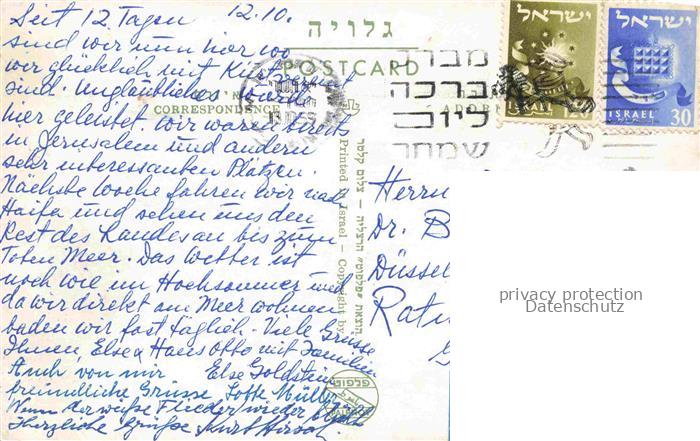 Seit 12 Tagen 12.10.
sind wir nun hier wo
wir glücklich mit Kurt vereint
sind. Unglaubliches wurde
hier geleistet. Wir waren bereits
in Jerusalem und andern
sehr interessanten Plätzen.
Nächste Woche fahren wir nach
Haifa und sehen uns den
Rest des Landes an bis zum
Toten Meer. Das Wetter ist
noch wie im Hochsommer und
da wir direkt am Meer wohnen
baden wir fast täglich. Viele Grüsse
Ihnen, Else & Hans Otto mit Familie
Auch von mir Else Goldstein
freundliche Grüsse Lotte Müller
Wenn der weiße Flieder wieder blüht
Herzliche Grüße Kurt Hirsch.
גלויה
POSTCARD
CORRESPONDENCE
מברך
ברכה
ליום
שמחה
ישראל
120
ישראל
ISRAEL 30
Herrn
Dr. B
Düssel
Ratin
הוצאת "פלפוט" הרצליה — צלום פלטר
Printed in Israel — Copyright by
פלפוט
privacy protection
Datenschutz